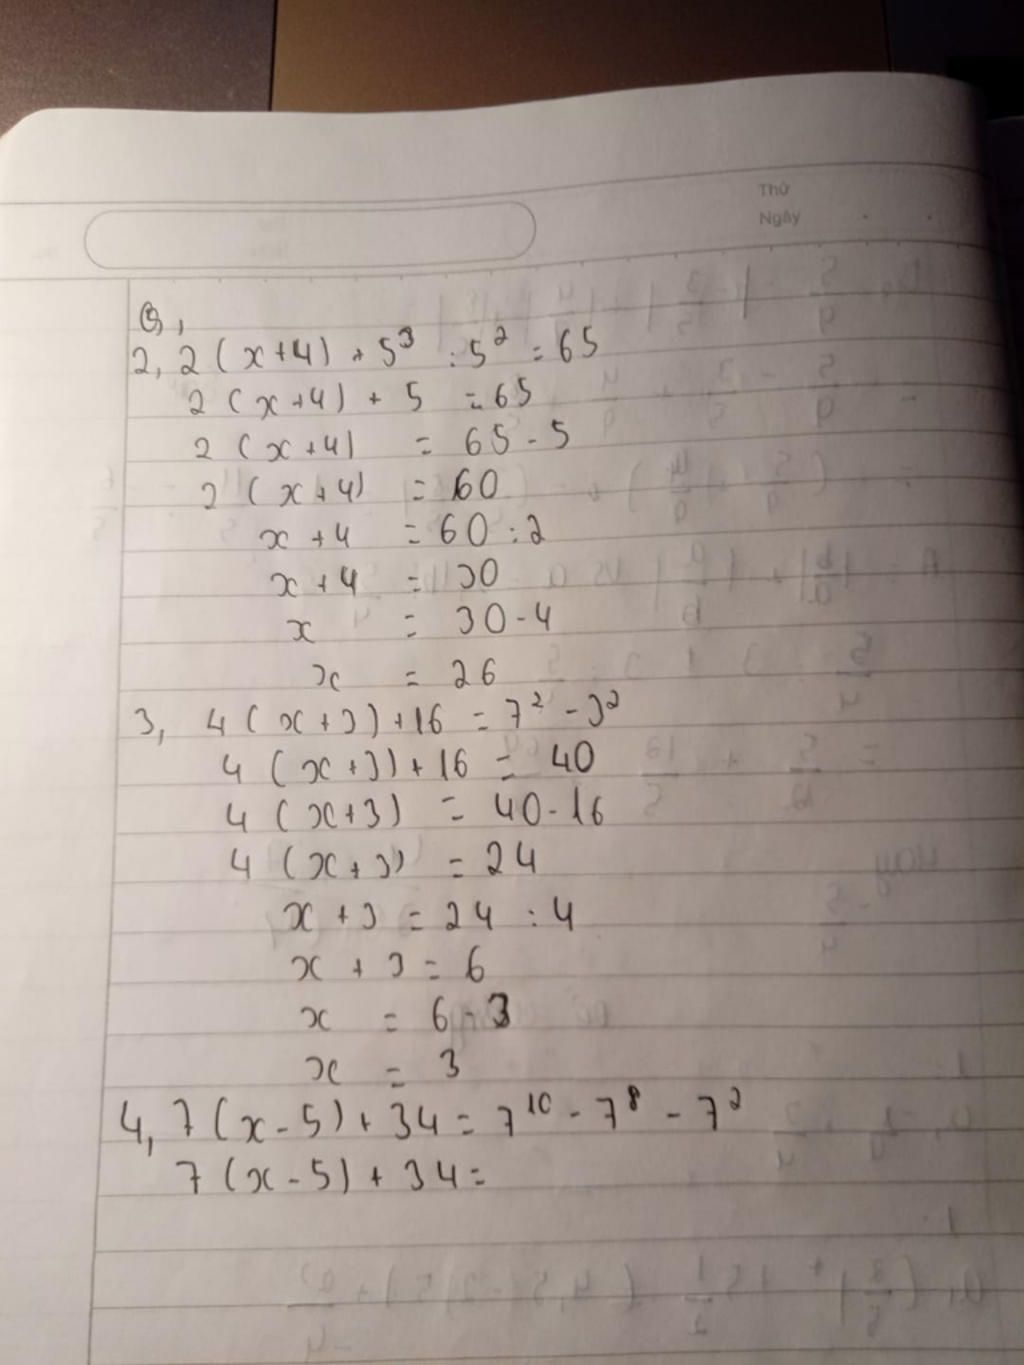 Thứ
Ngày
B,
2, 2 (x+4) + 5³ : 5² = 65
2 (x+4) + 5 = 65
2 (x+4) = 65 - 5
2 (x+4) = 60
x + 4 = 60 : 2
x + 4 = 30
x = 30 - 4
x = 26
3, 4 (x+3) + 16 = 7² - 3²
4 (x+3) + 16 = 40
4 (x+3) = 40 - 16
4 (x+3) = 24
x + 3 = 24 : 4
x + 3 = 6
x = 6 - 3
x = 3
4, 7 (x - 5) + 34 = 7¹⁰ - 7⁸ - 7²
7 (x - 5) + 34 =